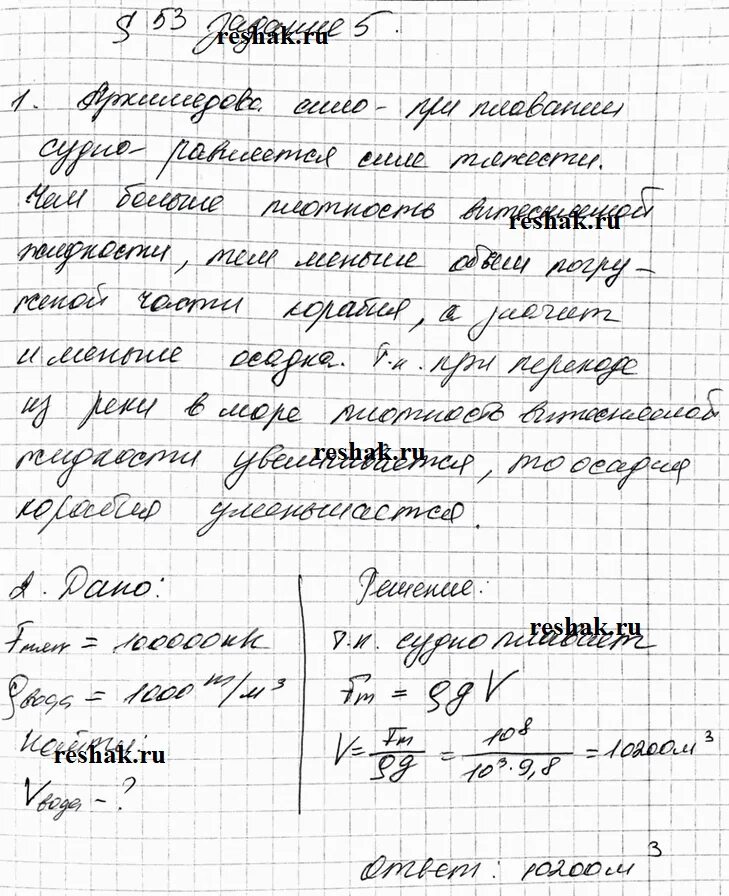 § 53 задание 5.
reshak.ru
1. Архимедова сила - при плавании
судно - равняется силе тяжести.
Чем больше плотность вытесненной
reshak.ru
жидкости, тем меньше объем погру-
женой части корабля, а значит
и меньше осадка. Т.к. при переходе
из реки в море плотность вытесняемой
reshak.ru
жидкости увеличивается, то осадка
корабля уменьшается.
2. Дано:
Fтяж = 100000кН
ρвода = 1000 т/м³
Найти:
reshak.ru
Vвода - ?
Решение:
reshak.ru
т.к. судно плавает
Fт = ρgV
V = Fт/ρg = 10⁸/10³·9,8 = 10200м³
Ответ: 10200м³